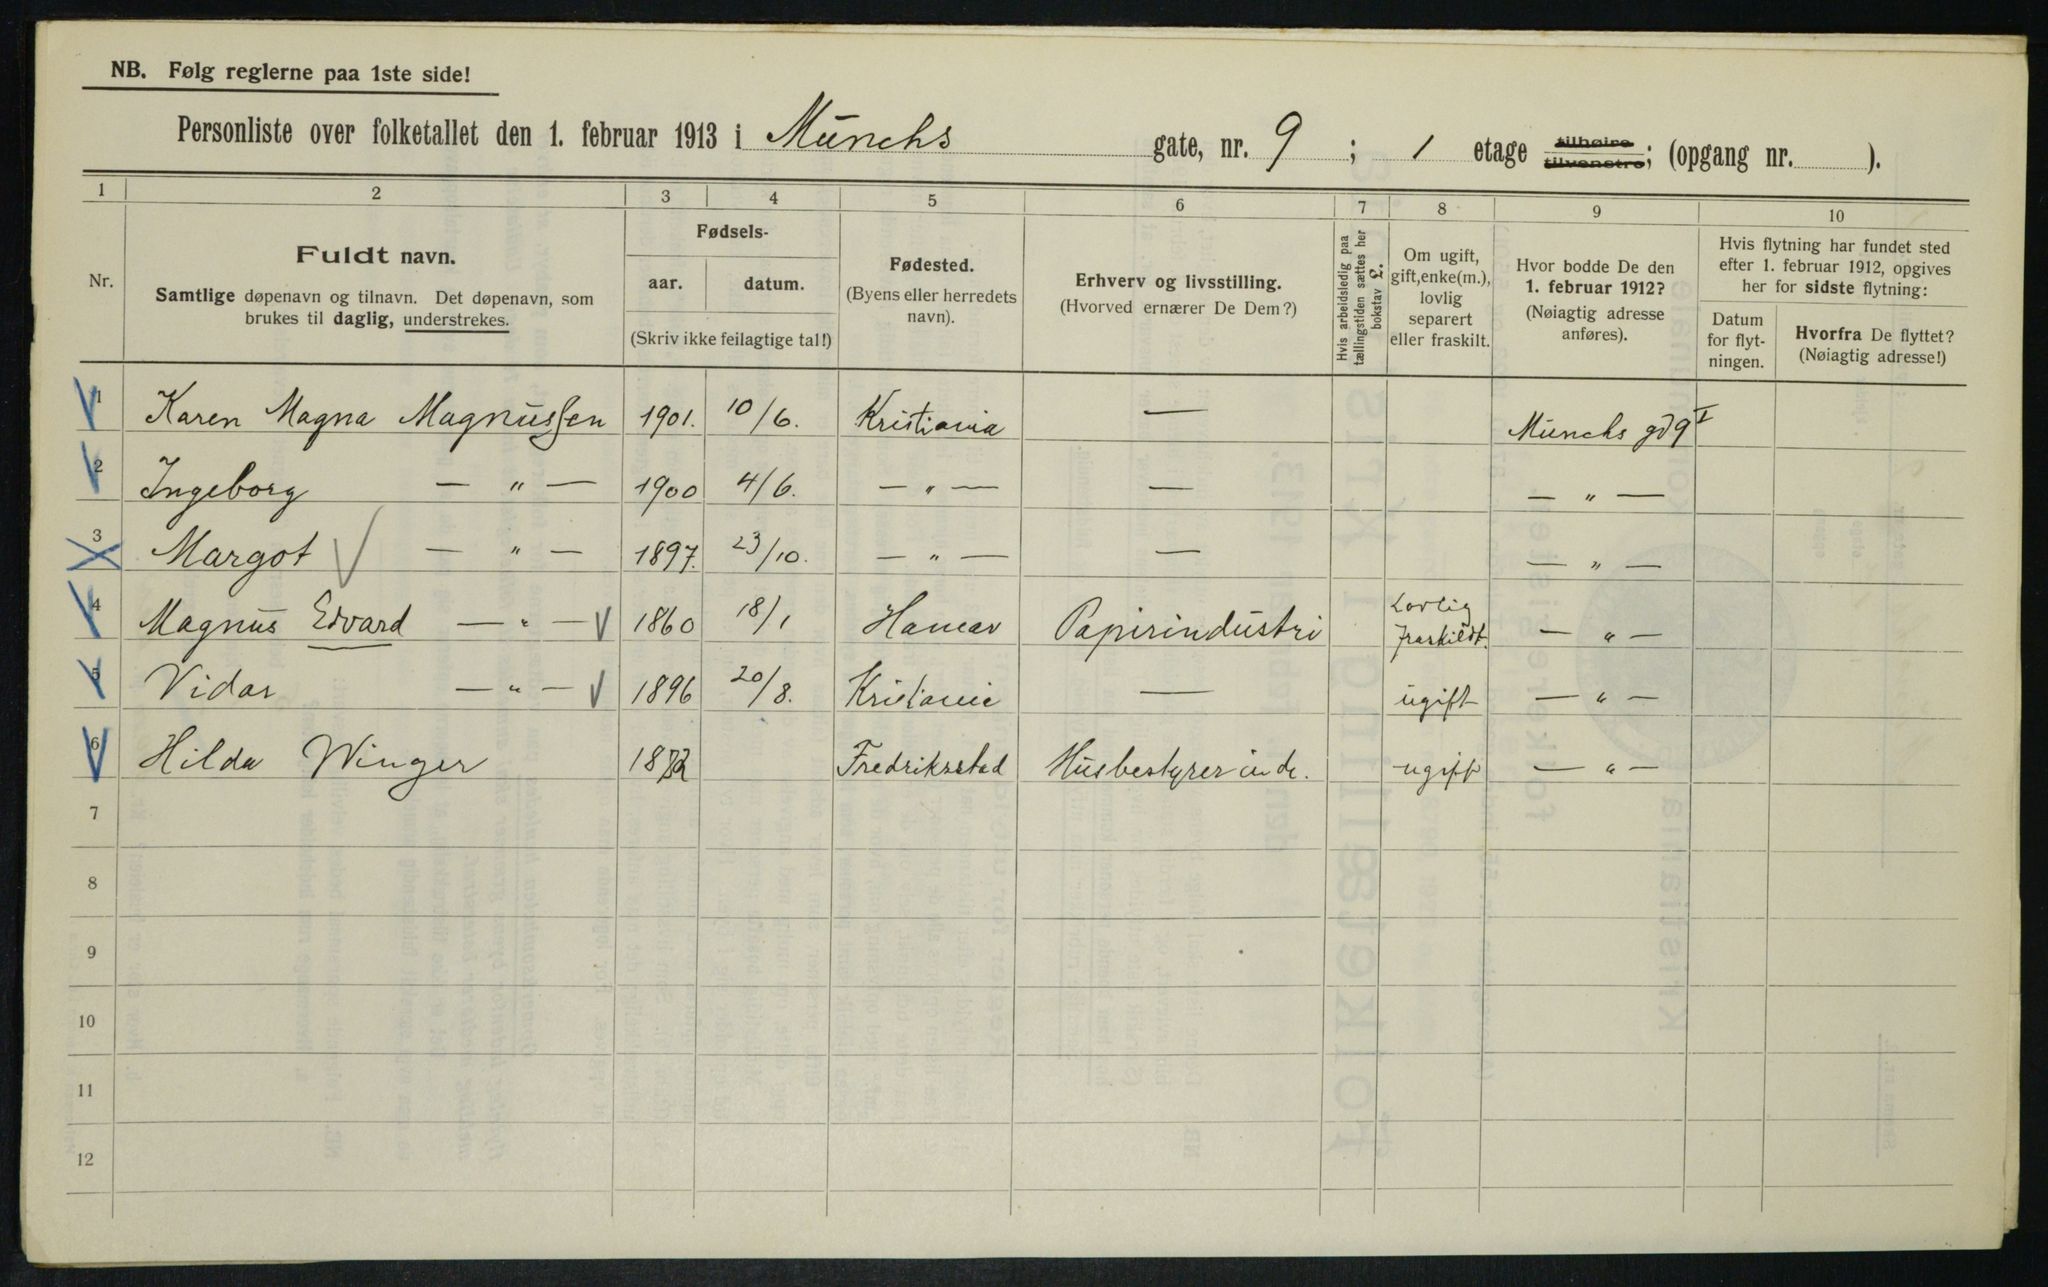 NB. Følg reglerne paa 1ste side!
Personliste over folketallet den 1. februar 1913 i Münchs gate, nr. 9 ; 1 etage tilhøire tilvenstre; (opgang nr. ).
1 2 3 4 5 6 7 8 9 10
Nr.
Fuldt navn.
Samtlige døpenavn og tilnavn. Det døpenavn, som
brukes til daglig, understrekes.
Fødsels-
aar. datum.
(Skriv ikke feilagtige tal!)
Fødested.
(Byens eller herredets
navn).
Erhverv og livsstilling.
(Hvorved ernærer De Dem?)
Hvis arbeidsledig paa
tællingstiden sættes her
bokstav L.
Om ugift,
gift, enke(m.),
lovlig
separert
eller fraskilt.
Hvor bodde De den
1. februar 1912?
(Nøiagtig adresse
anføres).
Hvis flytning har fundet sted
efter 1. februar 1912, opgives
her for sidste flytning:
Datum
for flyt-
ningen.
Hvorfra De flyttet?
(Nøiagtig adresse!)
1 Karen Magna Magnussen 1901. 10/6. Kristiania — Münchs gd 9 I
2 Ingeborg — " — 1900 4/6. — " — — — " —
3 Margot — " — 1897. 23/10. — " — — — " —
4 Magnus Edvard — " — 1860 18/1 Hamar Papirindustri Lovlig fraskildt. — " —
5 Vidar — " — 1896 20/8. Kristania — ugift — " —
6 Hilda Winger Fredriksstad Husbestyrerinde. ugift — " —
7
8
9
10
11
12